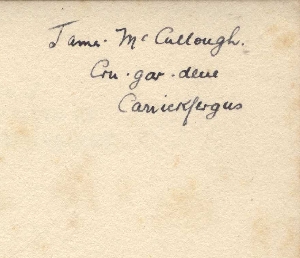 James McCullough.
Cru · gar · dene
Carrickfergus